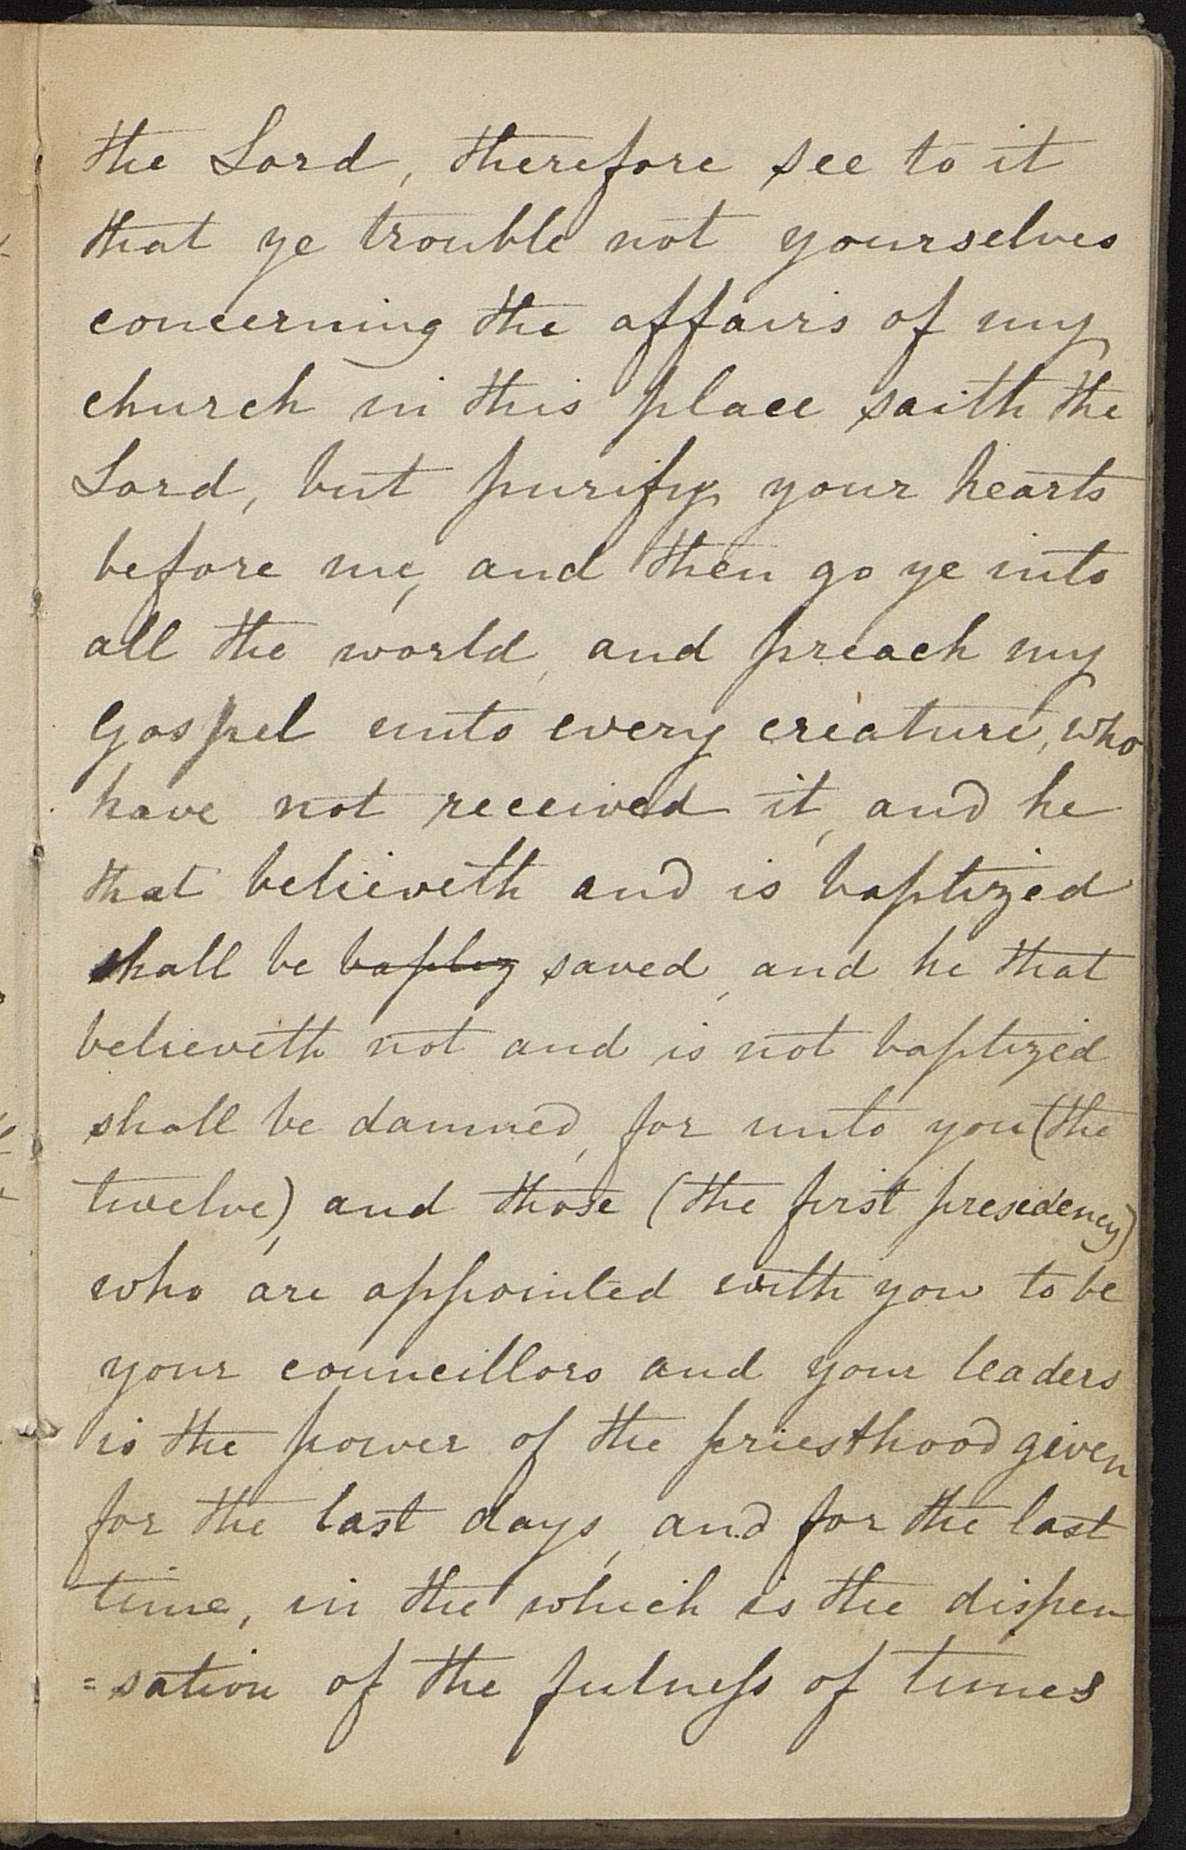 the Lord, therefore see to it
that ye trouble not yourselves
concerning the affairs of my
church in this place saith the
Lord, but purify your hearts
before me, and then go ye into
all the world, and preach my
Gospel unto every creature, who
have not received it, and he
that believeth and is baptized
shall be baptiz saved, and he that
believeth not and is not baptized
shall be damned, for unto you (the
twelve), and those (the first presidency)
who are appointed with you to be
your councillors and your leaders
is the power of the priesthood given
for the last days, and for the last
time, in the which is the dispen
=sation of the fulness of times